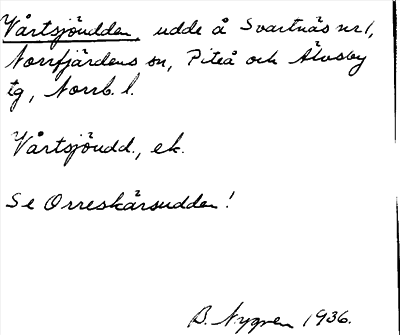 Vårtsjöudden, udde å Svartnäs nr 1,
Norrfjärdens sn, Piteå och Älvsby
tg, Norrb. l.
Vårtsjöudd., ek.
Se Orreskärsudden!
B. Nygren 1936.